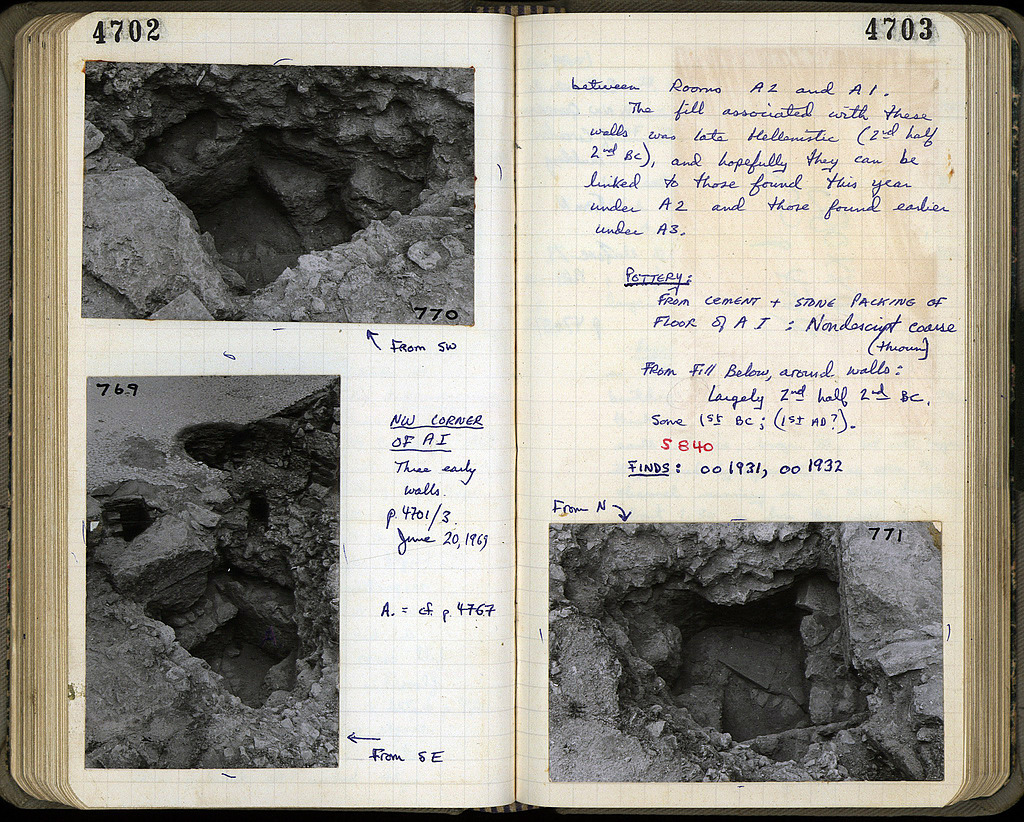 4702
770
From SW
769
NW CORNER
OF A I
Three early
walls.
p. 4701/3.
June 20, 1969
A. = cf. p. 4767
From SE
4703
between Rooms A2 and A1.
The fill associated with these
walls was late Hellenistic (2nd half
2nd BC), and hopefully they can be
linked to those found this year
under A2 and those found earlier
under A3.
POTTERY:
From CEMENT + STONE PACKING OF
FLOOR of A I : Nondescript coarse
(thrown)
From Fill Below, around walls:
Largely 2nd half 2nd BC.
Some 1st BC; (1st AD?).
S 840
FINDS: 00 1931, 00 1932
From N
771